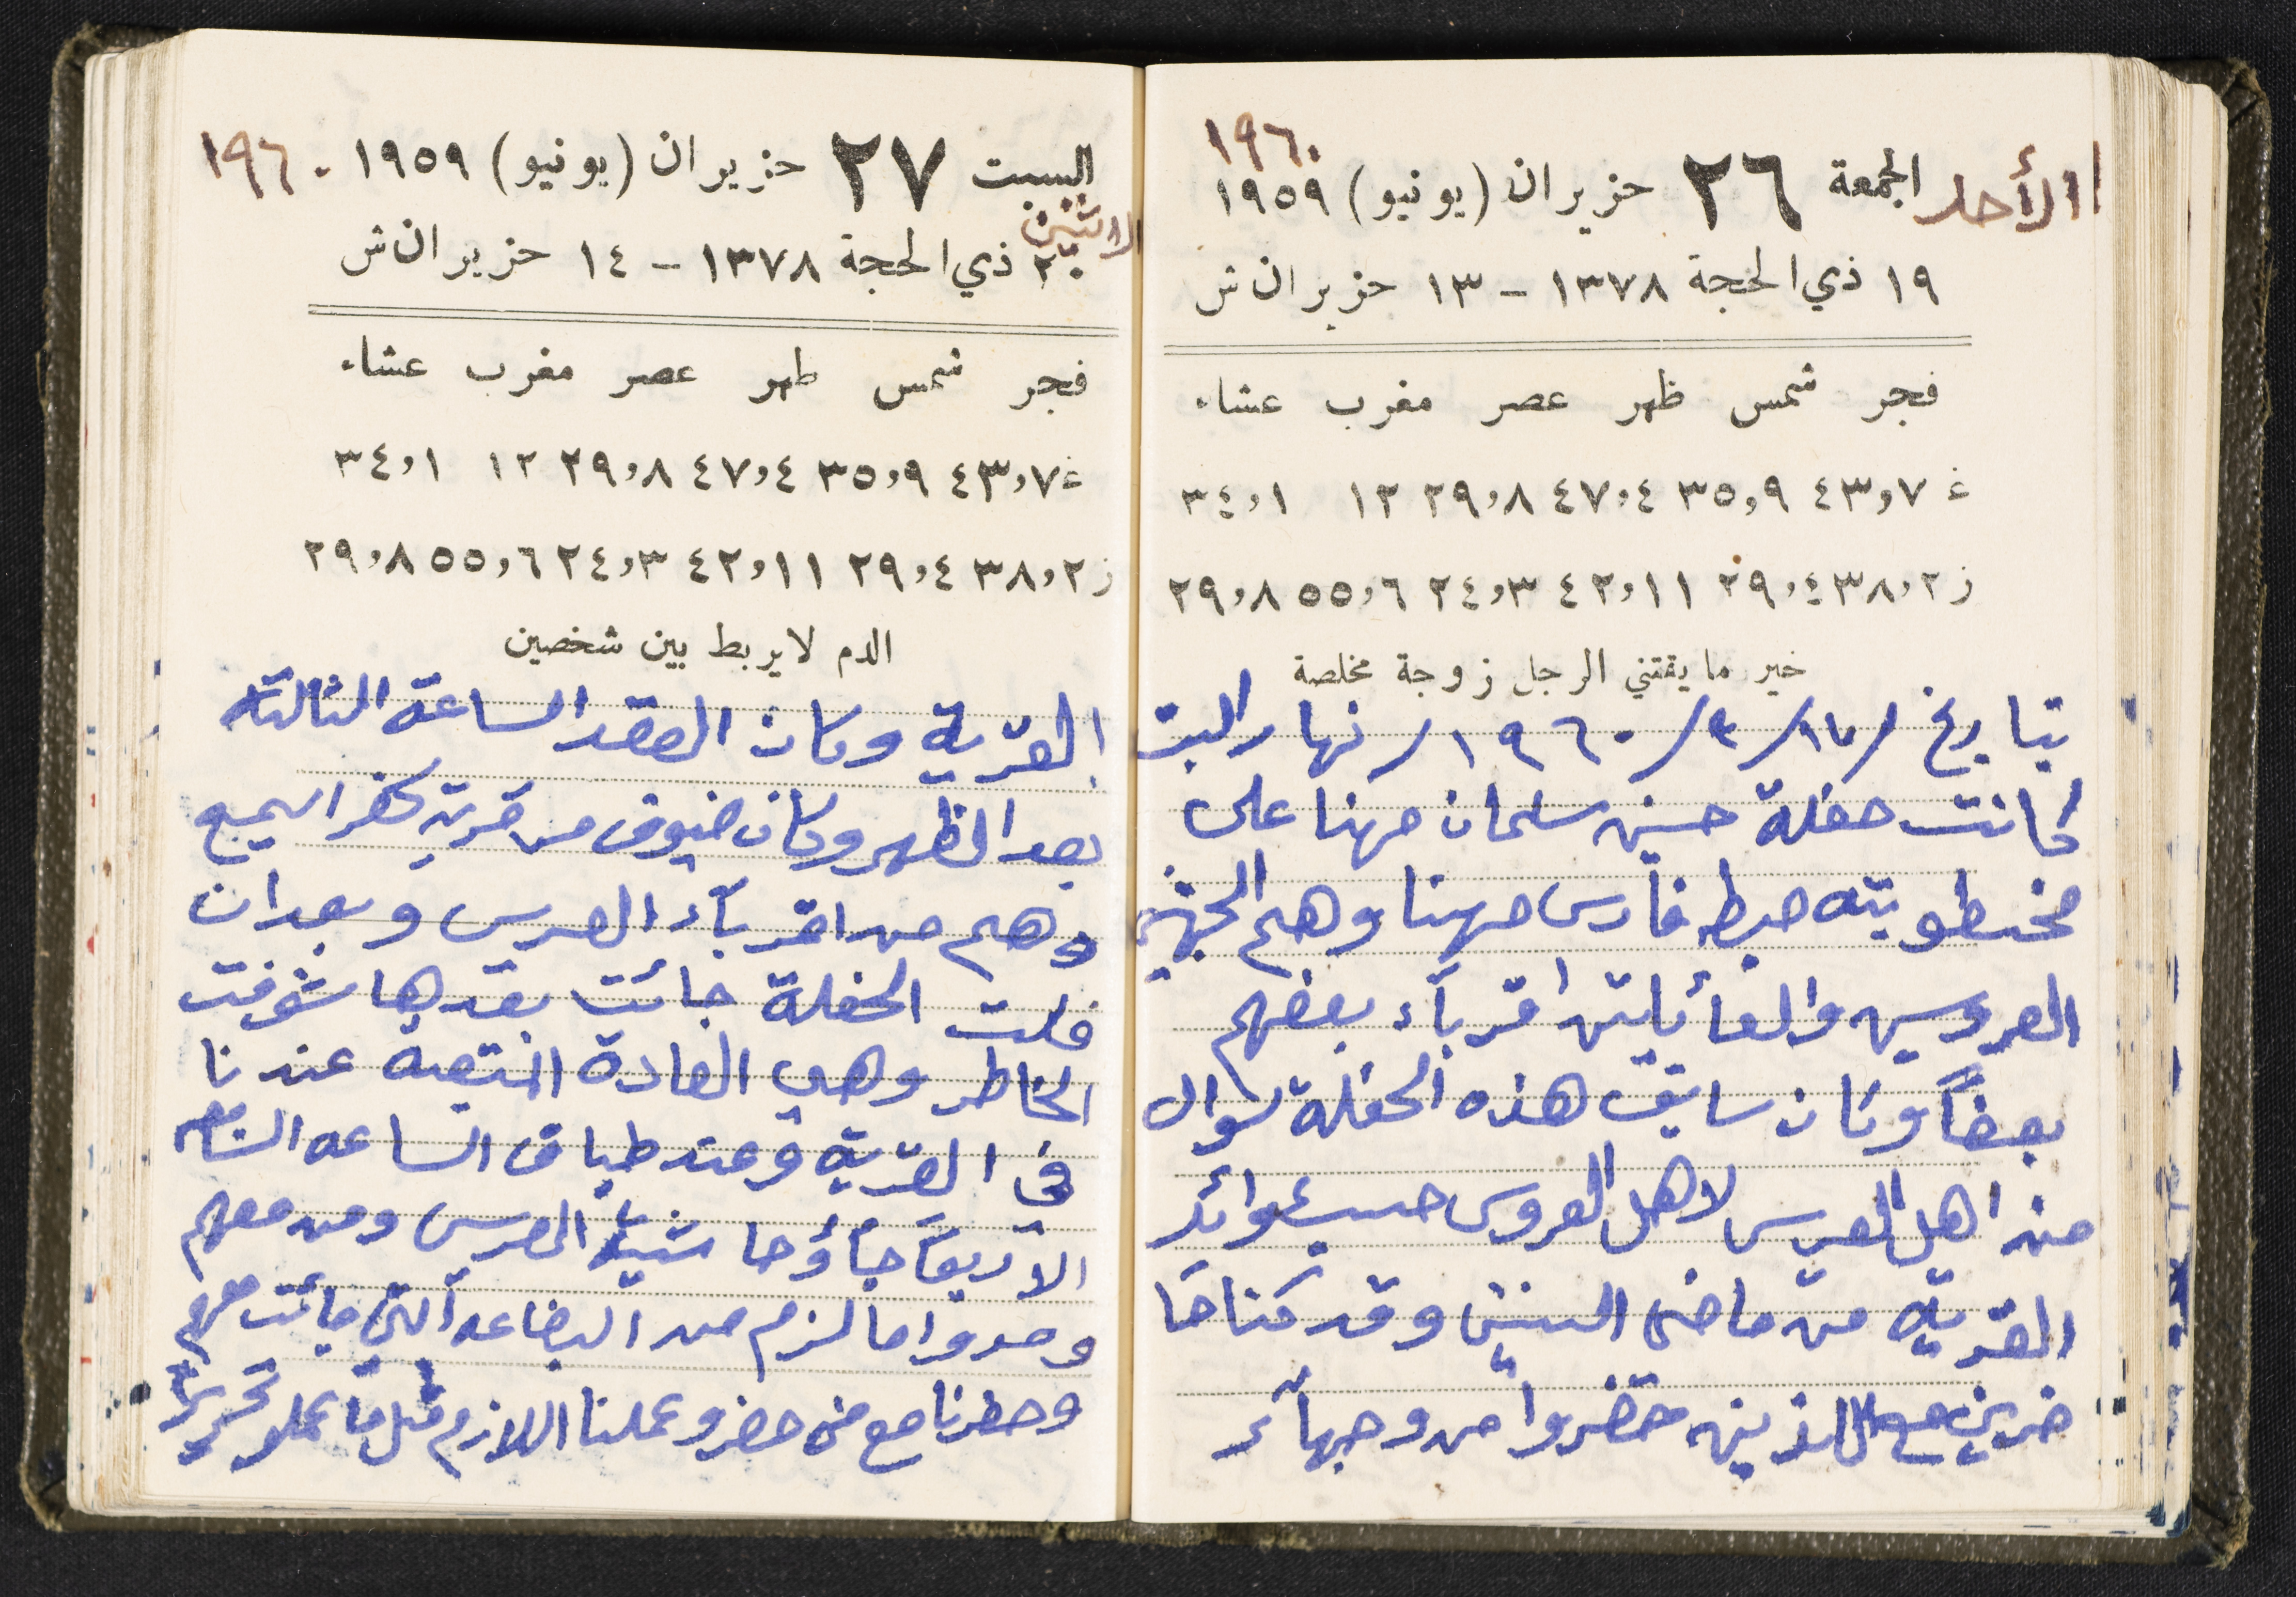 ١٩٦٠
الأحد الجمعة ٢٦ حزيران (يونيو) ١٩٥٩
١٩ ذي الحجة ١٣٧٨ - ١٣ حزيران ش
فجر شمس ظهر عصر مغرب عشاء
غ ٤٣,٧ ٣٥,٩ ٤٧,٤ ٢٩,٨ ١٢ ٣٤,١
ز ٣٨,٢ ٢٩,٤ ٤٢,١١ ٢٤,٣ ٥٥,٦ ٢٩,٨
خير ما يقتني الرجل زوجة مخلصة
بتاريخ /١٧/ /١٩٦٠/ نهار السبت
كانت حفلة حسين سلمان مهنا على
مخطوبته فارس مهنا وهم
العروسين والعائلتين اقرباء بعضهم
بعضاً وكان سابق هذه الحفلة سوال
من اهل العريس لاهل العروس حسب عوائد
القرية من ماضي السنين وقد كنا حا
ضرين مع الذين حضروا من وجهاء
السبت ٢٧ حزيران (يونيو) ١٩٥٩ ١٩٦٠
الاثنين
٢٠ ذي الحجة ١٣٧٨ - ١٤ حزيران ش
فجر شمس ظهر عصر مغرب عشاء
غ ٤٣,٧ ٣٥,٩ ٤٧,٤ ٢٩,٨ ١٢ ٣٤,١
ز ٣٨,٢ ٢٩,٤ ٤٢,١١ ٢٤,٣ ٥٥,٦ ٢٩,٨
الدم لا يربط بين شخصين
القرية وكان العقد الساعة الثالثة
بعد الظهر وكان ضيوف من قرية كفر اسميع
وهم من اقرباء العريس وبعد ان
فلت الحفلة جائت بعدها شوفت
الخاطر وهي العادة عندنا
في القرية وعند الساعه
جاؤا شباب العريس ومن معهم
ومدوا ما لزم من البضاعه التي جائت معهم
وحظرنا مع من حضر وعملنا اللازم مثل ما عملو